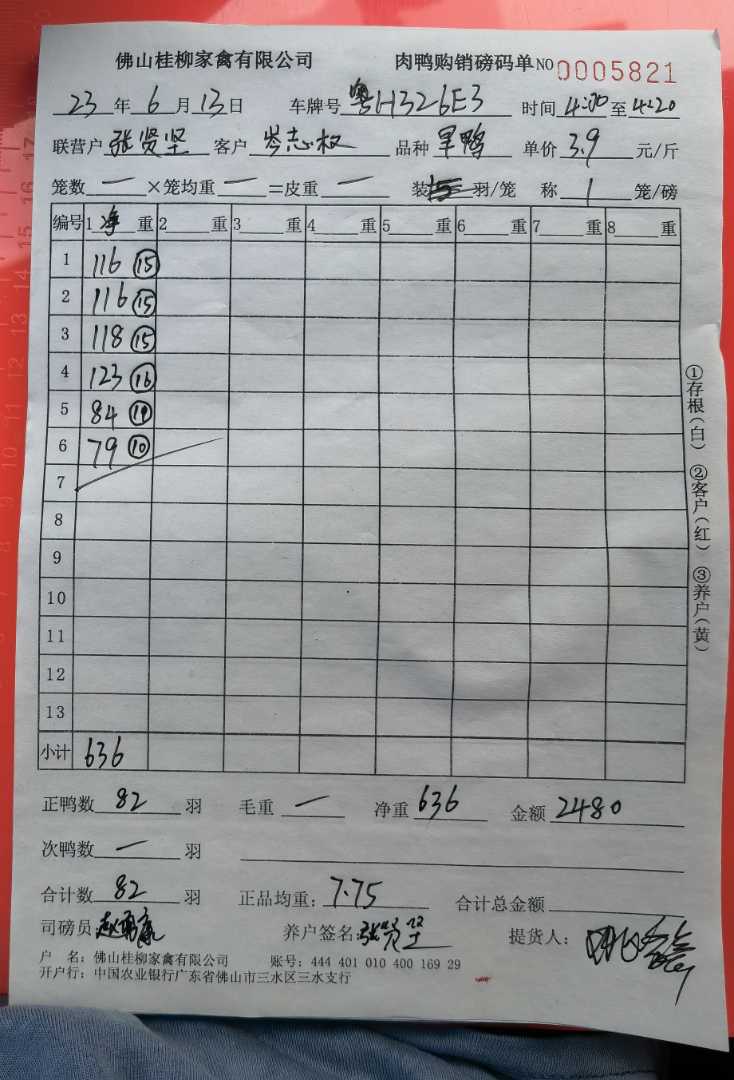 佛山桂柳家禽有限公司 肉鸭购销磅码单 NO 0005821
23 年 6 月 13 日 车牌号 粤H326E3 时间 4:00 至 4:20
联营户 张贤坚 客户 岑志权 品种 旱鸭 单价 3.9 元/斤
笼数 一 ×笼均重 一 =皮重 一 装 羽/笼 称 1 笼/磅
编号 1 净 重 2 重 3 重 4 重 5 重 6 重 7 重 8 重
1 116 ⑮
2 116 ⑮
3 118 ⑮
4 123 ⑯
5 84
6 79 ⑩
7
8
9
10
11
12
13
小计 636
正鸭数 82 羽 毛重 一 净重 636 金额 2480
次鸭数 一 羽
合计数 82 羽 正品均重: 7.75 合计总金额
司磅员: 养户签名: 张贤坚 提货人:
户 名: 佛山桂柳家禽有限公司 账号: 444 401 010 400 169 29
开户行: 中国农业银行广东省佛山市三水区三水支行
①存根(白) ②客户(红) ③养户(黄)